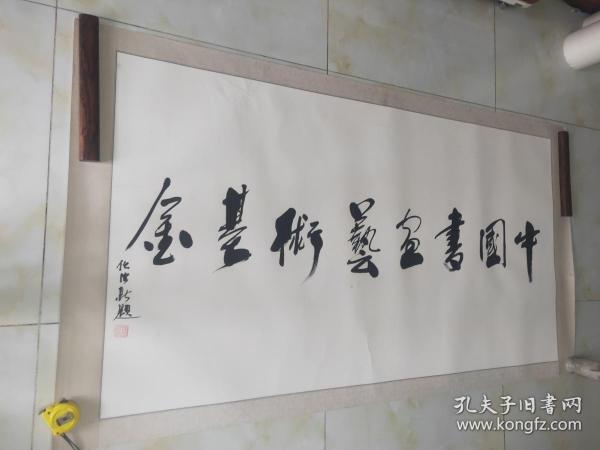 中國書畫藝術基金
孔夫子旧書网
www.kongfz.com